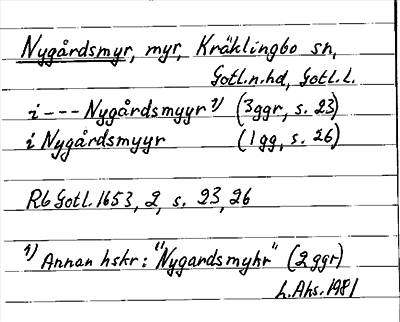 Nygårdsmyr, myr, Kräklingbo sn,
Gotl.n.hd, Gotl.l.
i --- Nygårdsmyyr 1) (3ggr, s. 23)
i Nygårdsmyyr (1 gg, s. 26)
Rb Gotl. 1653, 2, s. 23, 26
1) Annan hskr: "Nygardsmyhr" (2 ggr)
L. Ahs. 1981